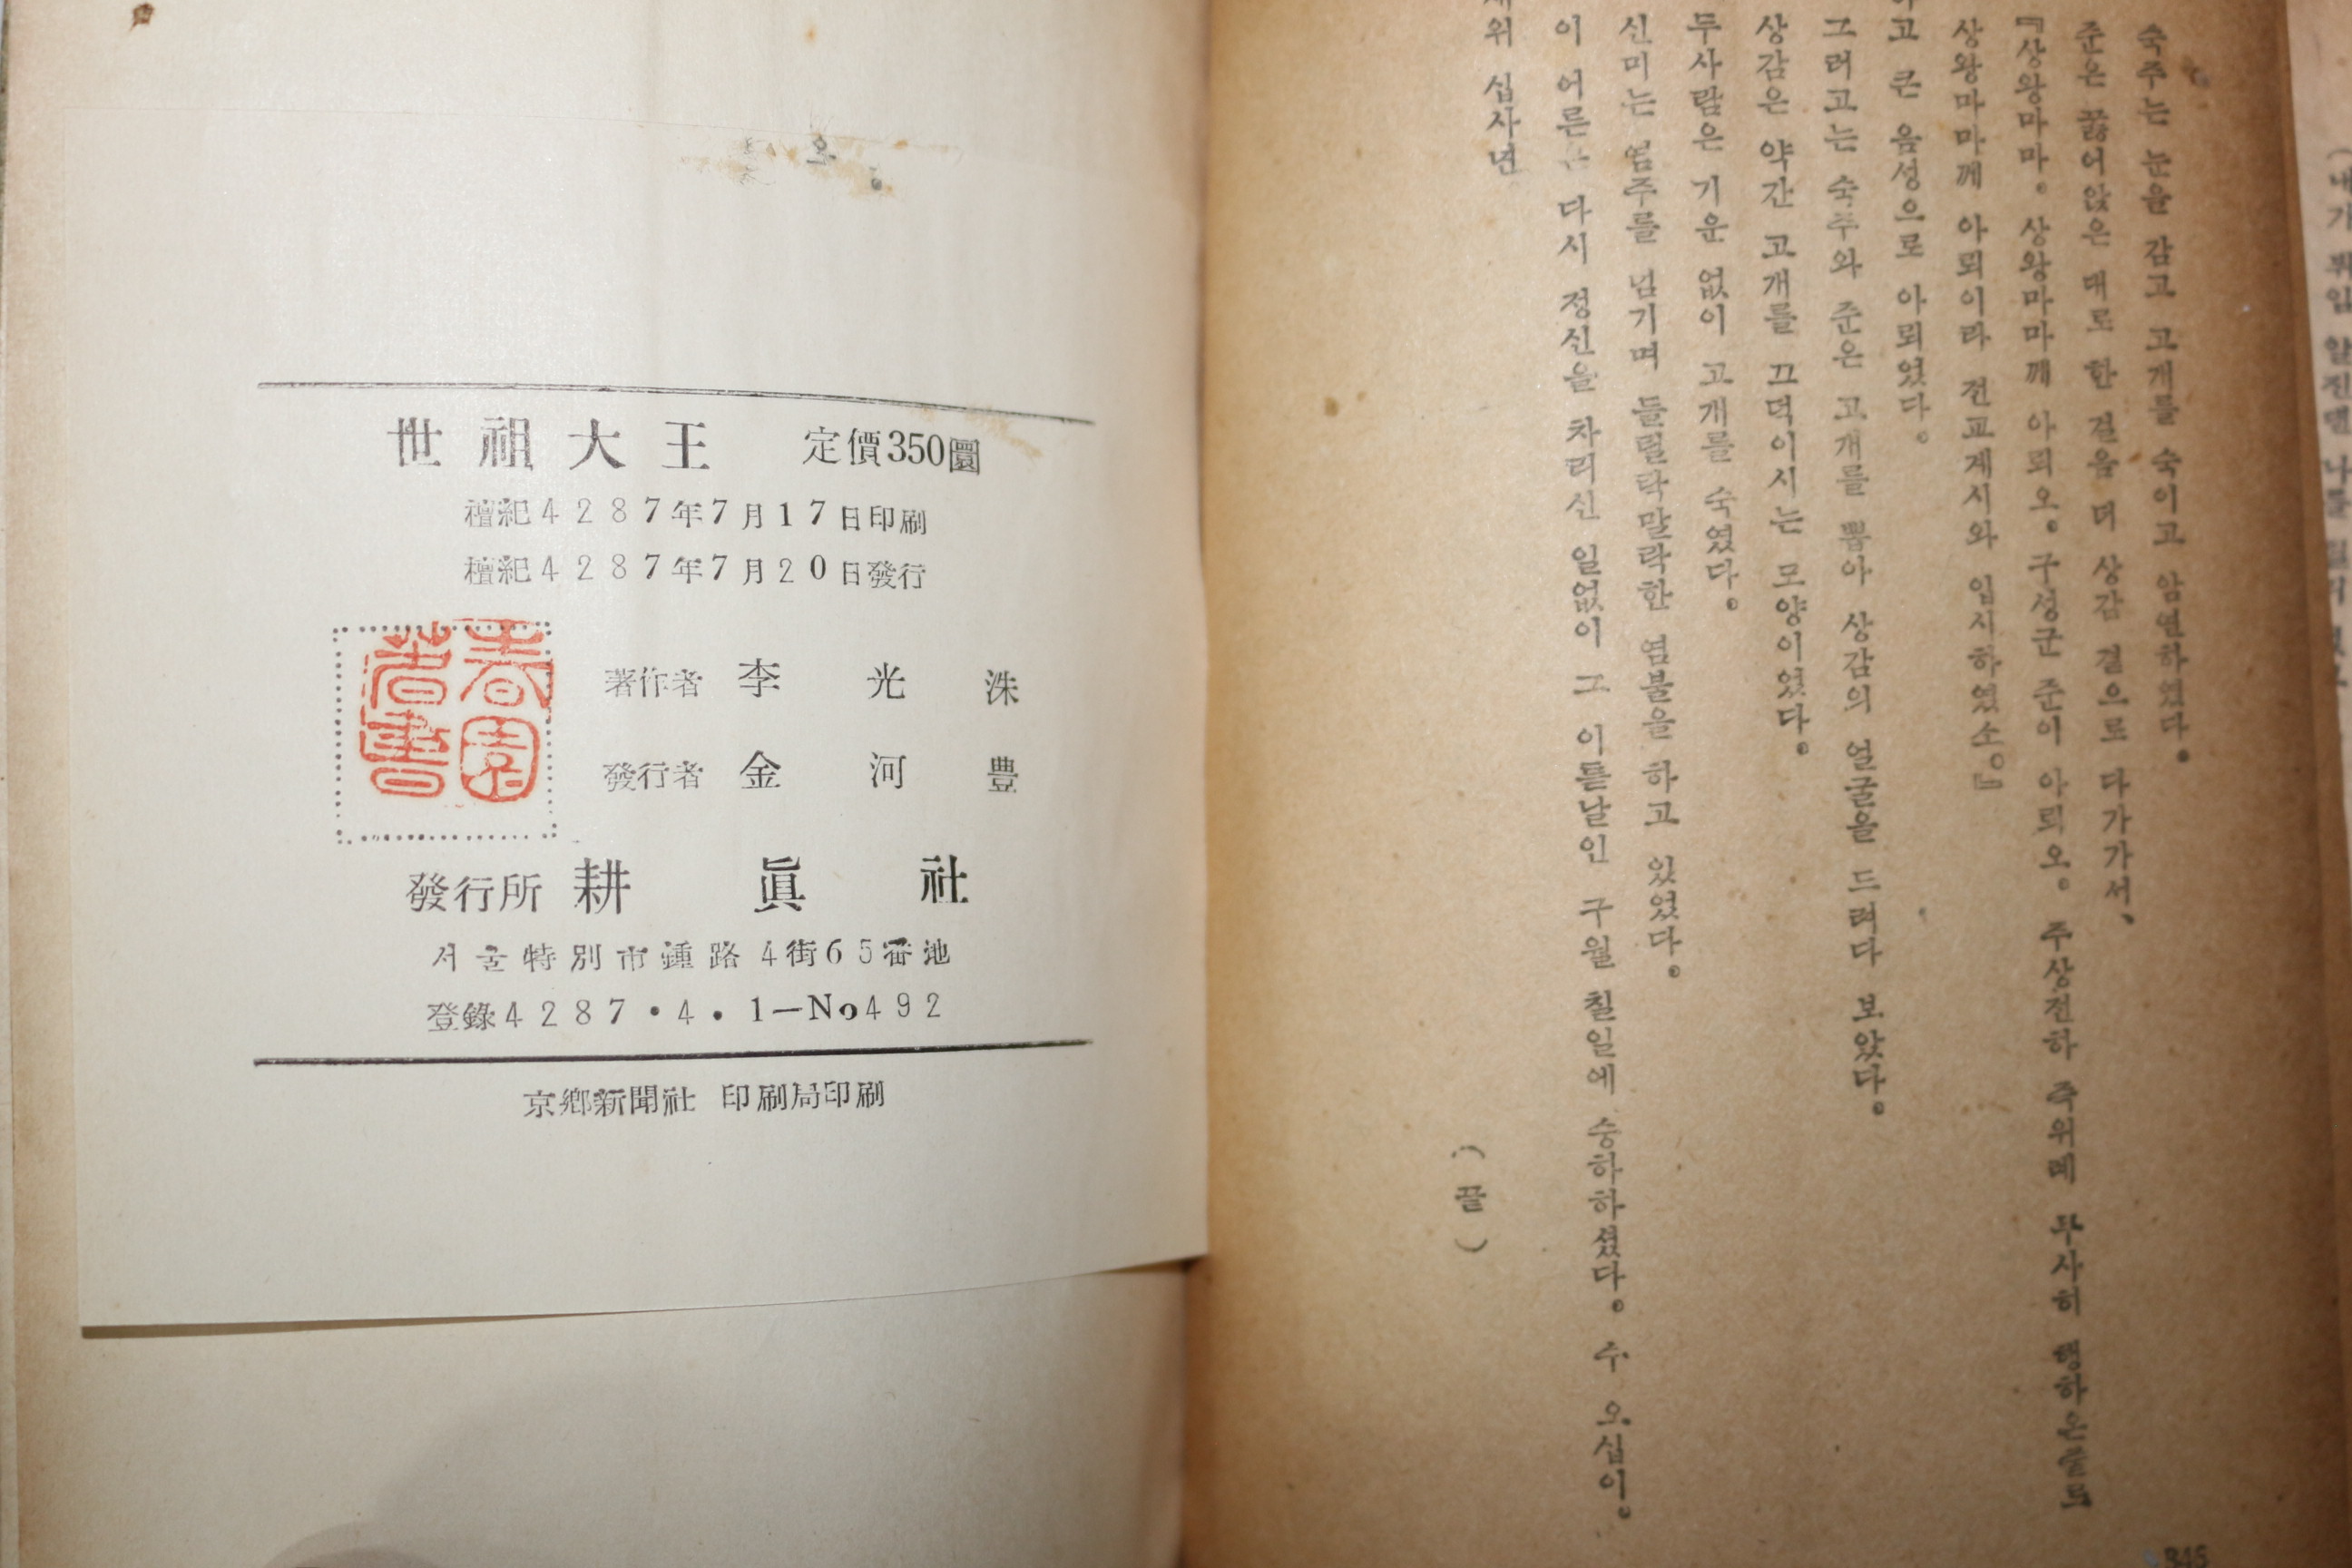 世祖大王 定價350圜
檀紀4287年7月17日印刷
檀紀4287年7月20日發行
春園著書
著作者 李光洙
發行者 金河豊
發行所 耕眞社
서울特別市鍾路4街65番地
登錄4287・4・1—No492
京鄕新聞社 印刷局印刷
숙주는 눈을 감고 고개를 숙이고 암연하였다。
준은 꿇어앉은 대로 한 걸음 더 상감 곁으로 다가가서、
『상왕마마。상왕마마께 아뢰오。구성군 준이 아뢰오。주상전하 즉위례 무사히 행하온줄로
상왕마마께 아뢰이라 전교계시와 입시하였소。』
하고 큰 음성으로 아뢰었다。
그러고는 숙주와 준은 고개를 뽑아 상감의 얼굴을 드려다 보았다。
상감은 약간 고개를 끄덕이시는 모양이었다。
두사람은 기운 없이 고개를 숙였다。
신미는 염주를 넘기며 들릴락말락한 염불을 하고 있었다。
이 어른은 다시 정신을 차리신 일없이 그 이튿날인 구월 칠일에 승하하셨다。수 오십이。
재위 십사년
(끝)